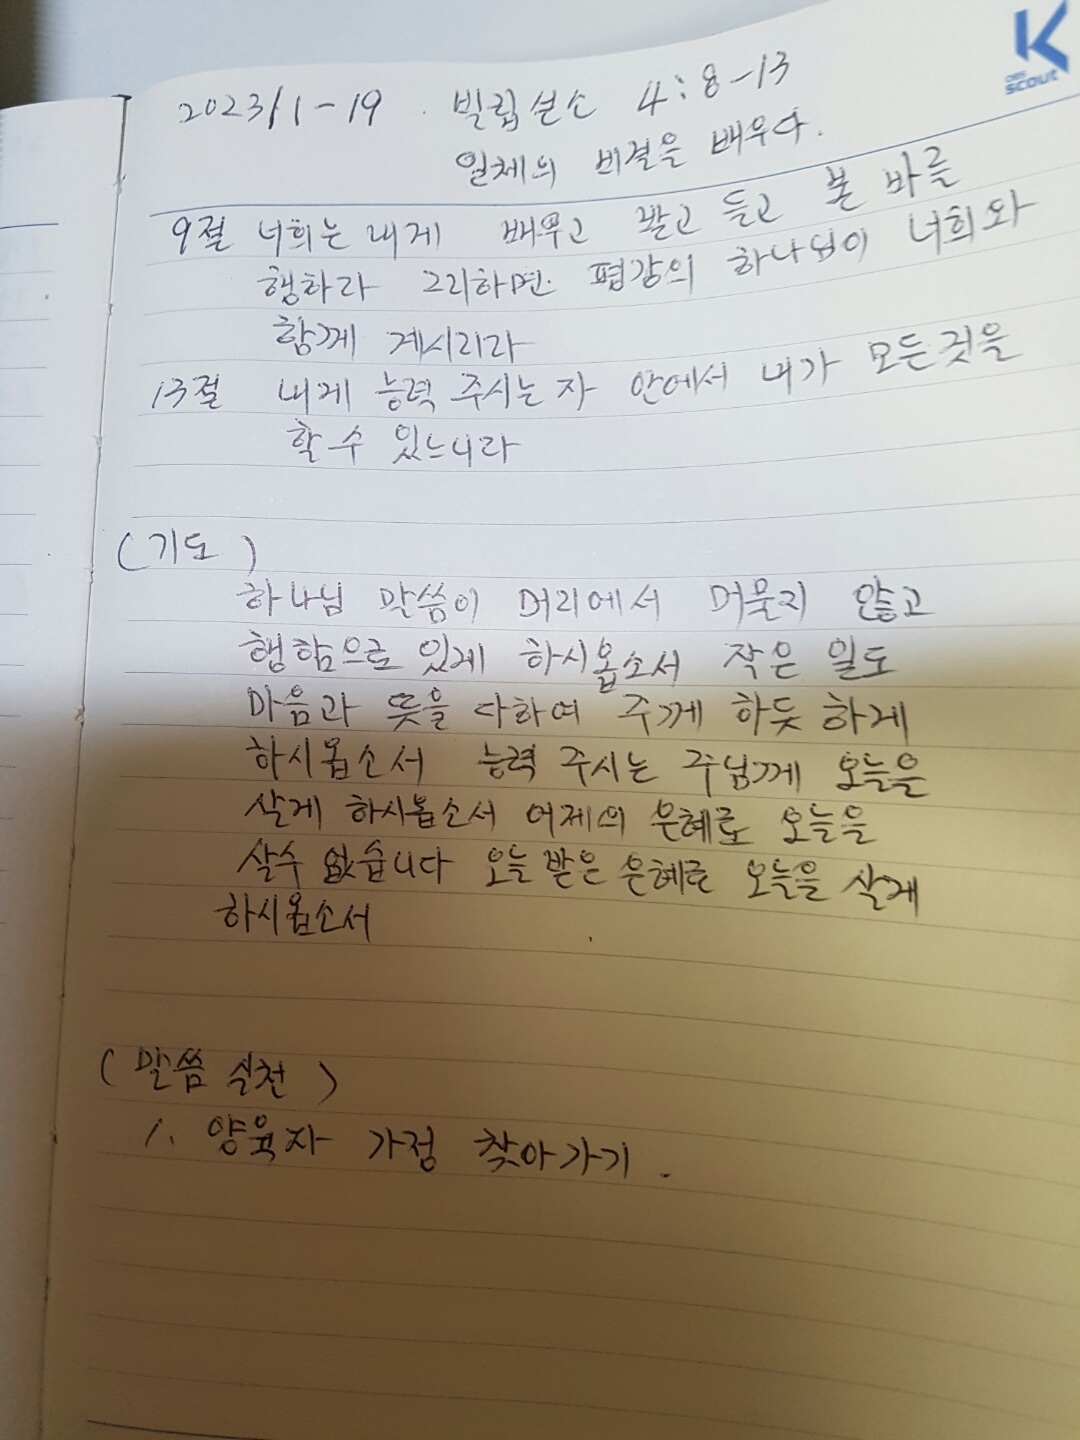 K
OBS
scout
2023/1-19 . 빌립보소 4:8-13
일체의 비결을 배우다.
9절 너희는 내게 배우고 받고 듣고 본 바를
행하라 그리하면 평강의 하나님이 너희와
함께 계시리라
13절 내게 능력 주시는 자 안에서 내가 모든것을
할 수 있느니라
(기도)
하나님 말씀이 머리에서 머물지 않고
행함으로 있게 하시옵소서 작은 일도
마음과 뜻을 다하여 주께 하듯 하게
하시옵소서 능력 주시는 주님께 오늘을
살게 하시옵소서 어제의 은혜로 오늘을
살수 없습니다 오늘 받은 은혜로 오늘을 살게
하시옵소서
(말씀 실천)
1. 양육자 가정 찾아가기.